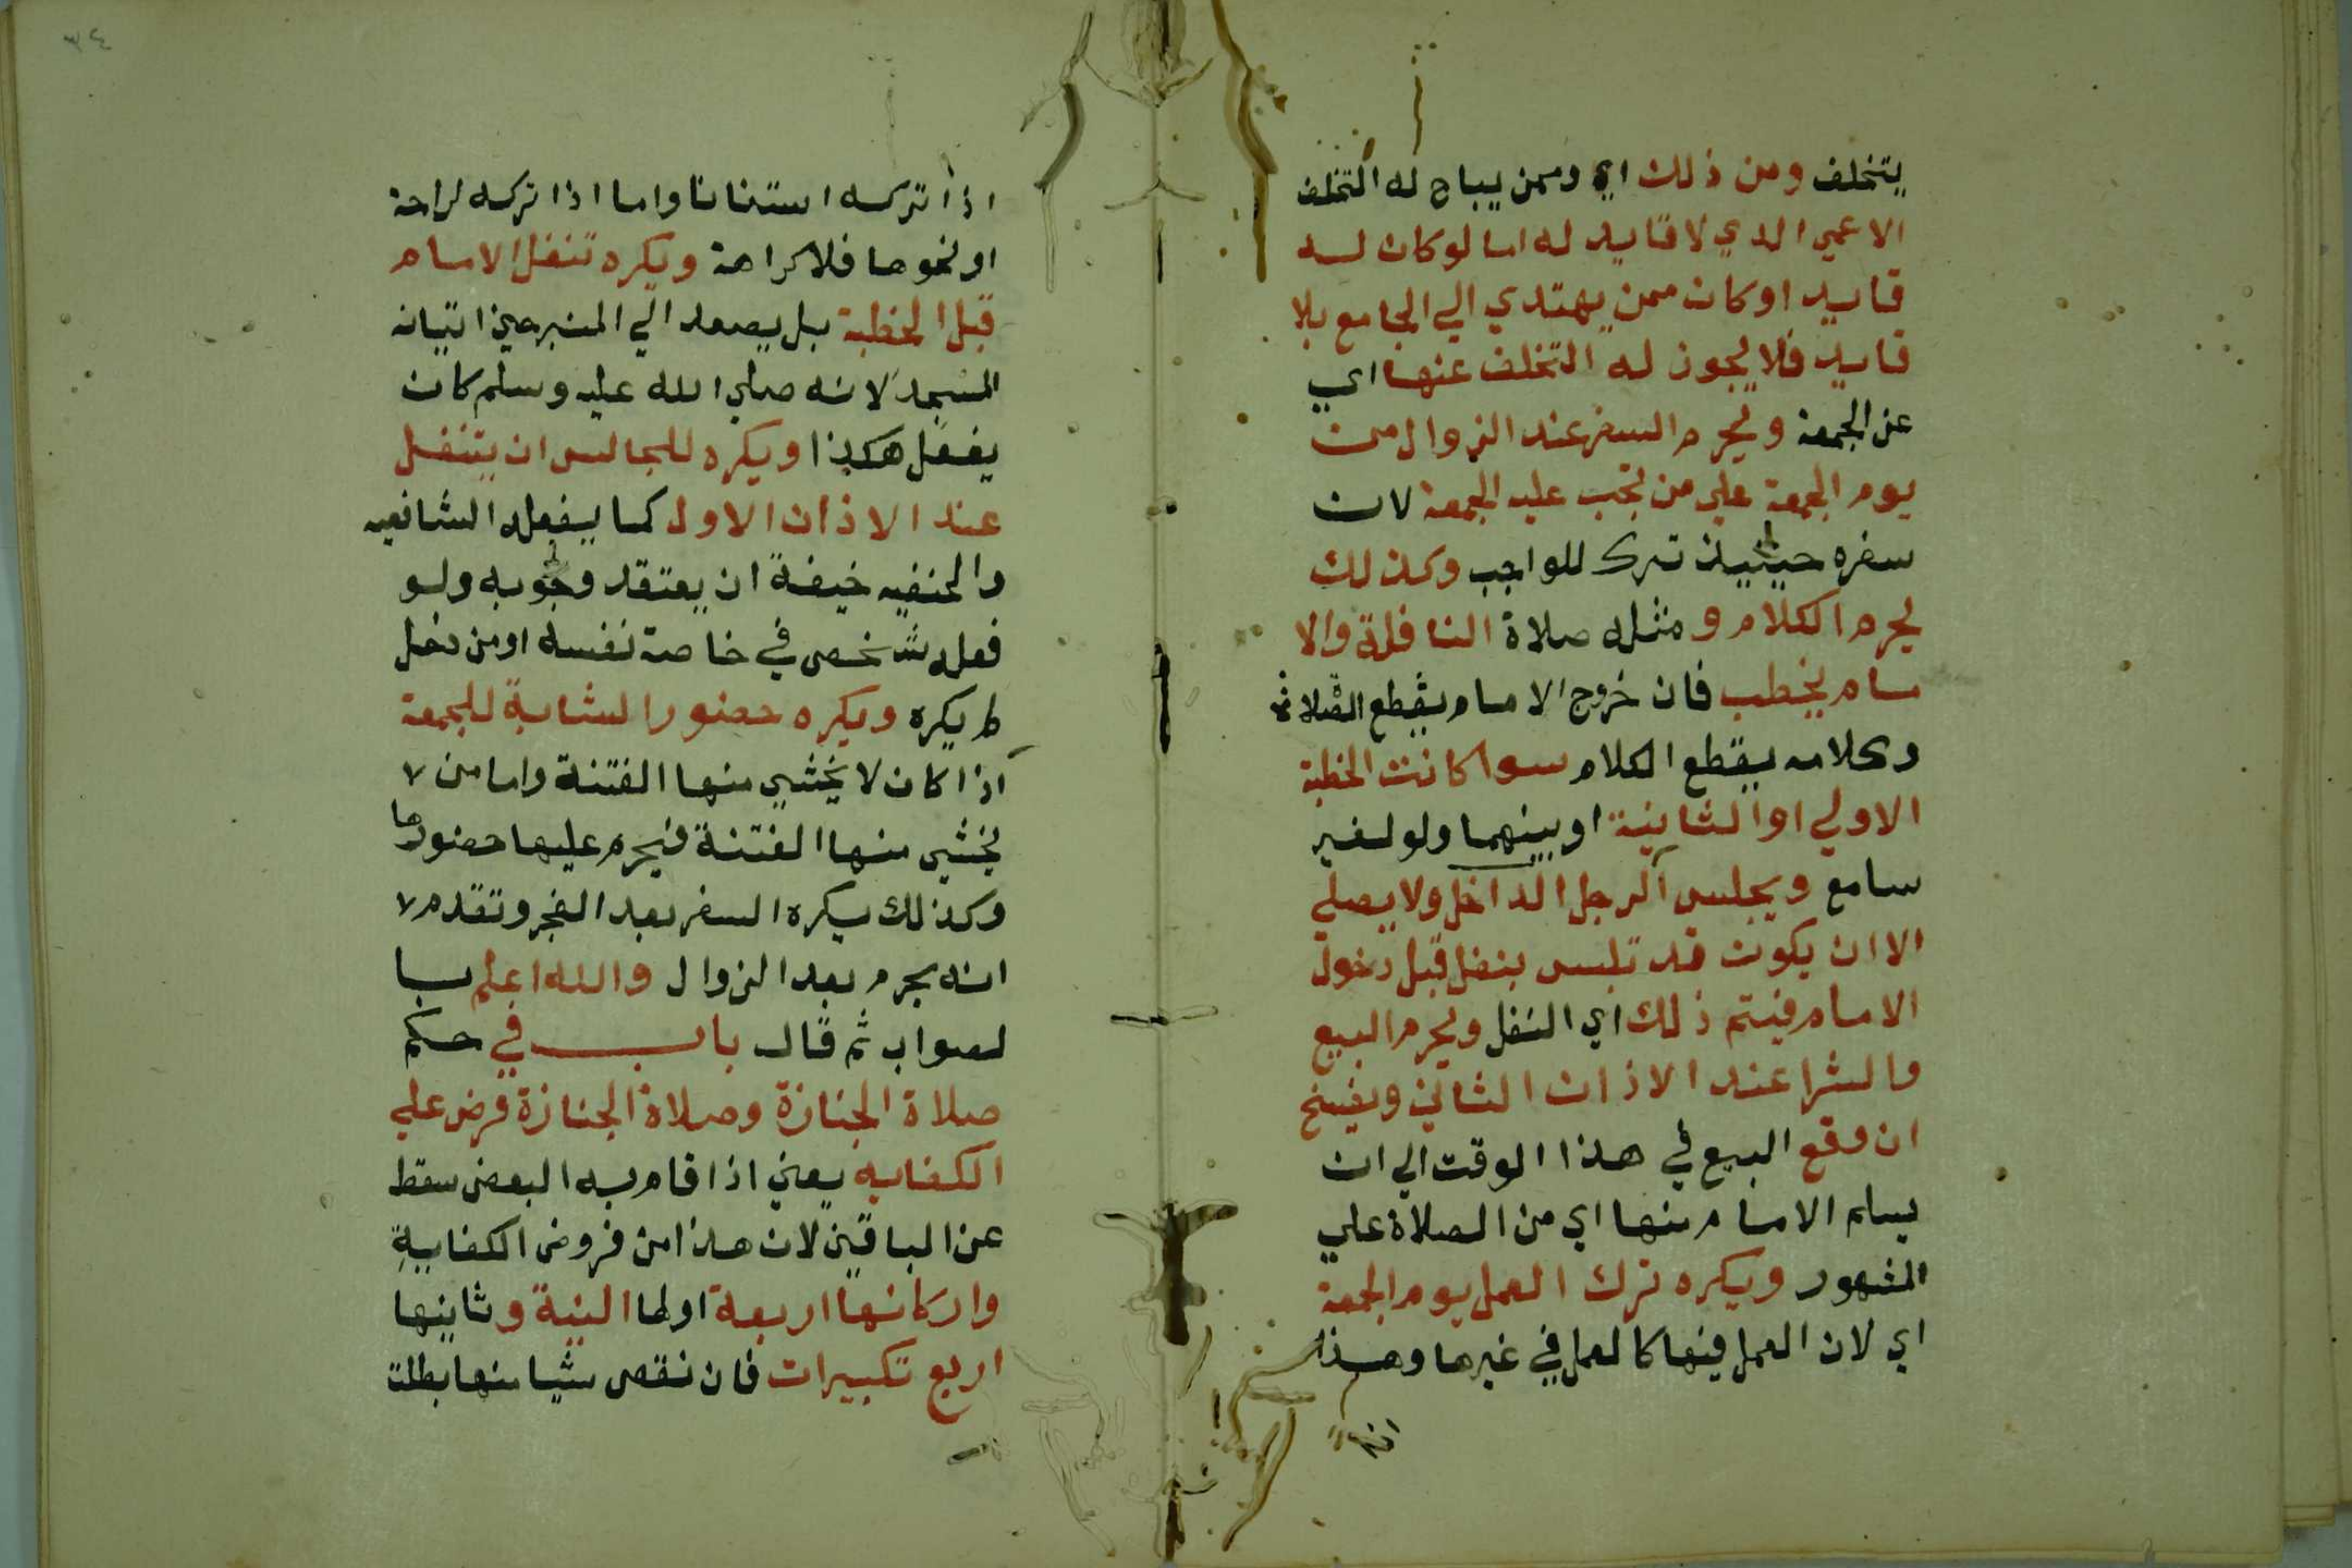 يتخلف ومن ذلك اي وممن يباح له التخلف
الاعمي الدي لا قايد له اما لو كان له
قايد او كان ممن يهتدي الي الجامع بلا
قايد فلا يجوز له التخلف عنها اي
عن الجمعة ويحرم السفر عند الزوال من
يوم الجمعة علي من تجب عليه الجمعة لان
سفره حينيذ ترك للواجب وكذلك
يحرم الكلام ومثله صلاة النافلة والا
مام يخطب فان خروج الامام يقطع الصلاة
وكلامه يقطع الكلام سوا كانت الخطبة
الاولي او الثانية او بينهما ولو لغير
سامع ويجلس الرجل الداخل ولا يصلي
الا ان يكون قد تلبس بنفل قبل دخول
الامام فيتم ذلك اي النفل ويحرم البيع
والشرا عند الاذان الثاني ويفسخ
ان وقع البيع في هذا الوقت الي ان
يسلم الامام منها اي من الصلاة علي
المشهور ويكره ترك العمل يوم الجمعة
اي لان العمل فيها كالعمل في غيرها وهذا
اذا
٣٤
اذا تركه استنانا واما اذا تركه لراحة
او نحوها فلا كراهة ويكره تنفل الامام
قبل الخطبة بل يصعد الي المنبر حين اتيانه
المسجد لانه صلي الله عليه وسلم كان
يفعل هكذا ويكره للجالس ان يتنفل
عند الاذان الاول كما يفعله الشافعيه
والحنفيه خيفة ان يعتقد وجوبه ولو
فعله شخص في خاصة نفسه او من دخل
لم يكره ويكره حضور الشابة للجمعة
اذا كان لا يخشي منها الفتنة واما من لا
يخشي منها الفتنة فيحرم عليها حضورها
وكذلك يكره السفر بعد الفجر وتقدم لا
انه يحرم بعد الزوال والله اعلم با
لصواب ثم قال باب في حكم
صلاة الجنازة وصلاة الجنازة فرض علي
الكفايه يعني اذا قام به البعض سقط
عن الباقين لان هذا من فروض الكفاية
واركانها اربعة اولها النية وثانيها
اربع تكبيرات فان نقص شيا منها بطلت